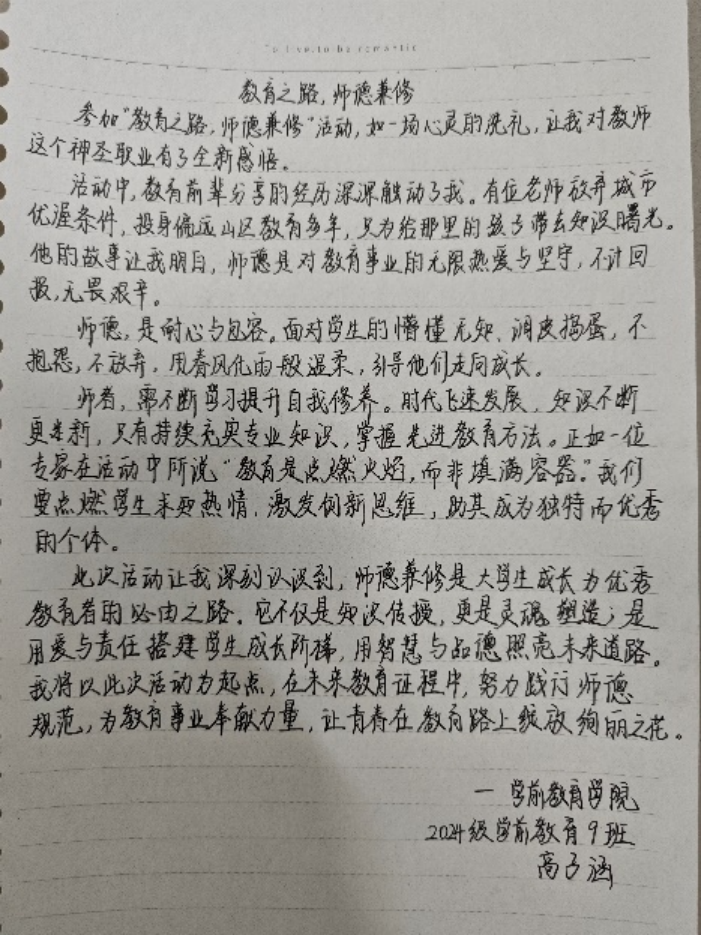 To live, to be romantic
教育之路，师德兼修
参加“教育之路，师德兼修”活动，如一场心灵的洗礼，让我对教师
这个神圣职业有了全新感悟。
活动中，教育前辈分享的经历深深触动了我。有位老师放弃城市
优渥条件，投身偏远山区教育多年，只为给那里的孩子带去知识曙光。
他的故事让我明白，师德是对教育事业的无限热爱与坚守，不计回
报，无畏艰辛。
师德，是耐心与包容。面对学生的懵懂无知、调皮捣蛋，不
抱怨，不放弃，用春风化雨般温柔，引导他们走向成长。
师者，需不断学习提升自我修养。时代飞速发展，知识不断
更新，只有持续充实专业知识，掌握先进教育方法。正如一位
专家在活动中所说“教育是点燃火焰，而非填满容器。”我们
要点燃学生求知热情，激发创新思维，助其成为独特而优秀
的个体。
此次活动让我深刻认识到，师德兼修是大学生成长为优秀
教育者的必由之路。它不仅是知识传授，更是灵魂塑造；是
用爱与责任搭建学生成长阶梯，用智慧与品德照亮未来道路。
我将以此次活动为起点，在未来教育征程中，努力践行师德
规范，为教育事业奉献力量，让青春在教育路上绽放绚丽之花。
一 学前教育学院
2024级学前教育9班
高子涵